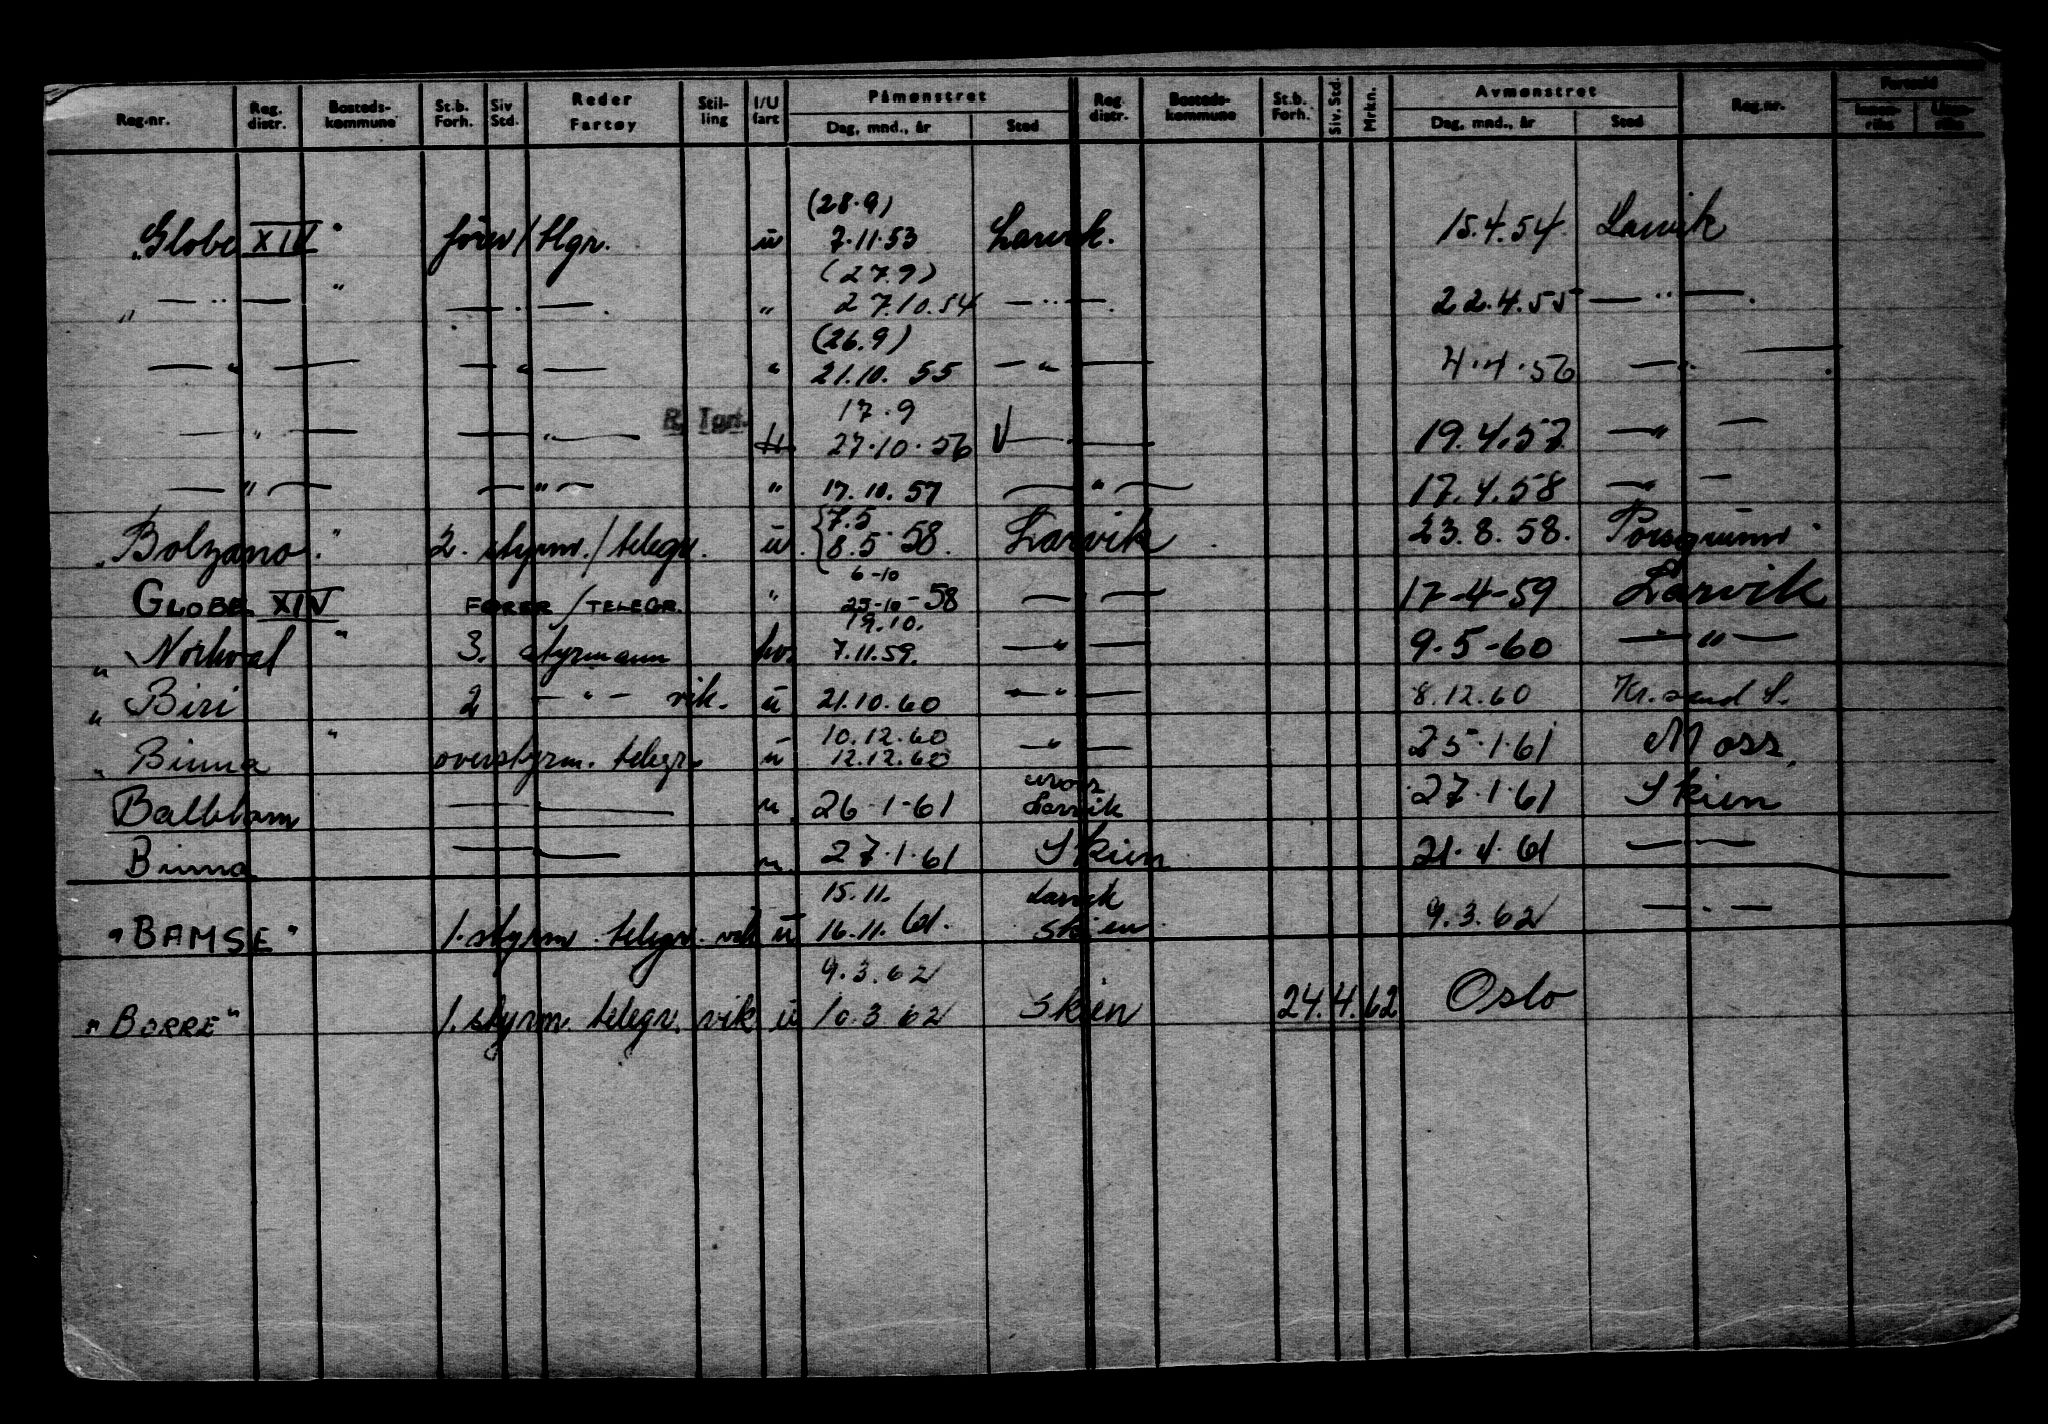 Reg.nr. Reg. distr. Bosteds- kommune St.b. Forh. Siv Std. Reder Fartøy Stil- ling I/U fart Påmønstret Dag, mnd., år Sted Reg. distr. Bosteds- kommune St.b. Forh. Siv. Std. Mrkn. Avmønstret Dag, mnd., år Sted Reg.nr.
(28.9)
„Globe XIV" fører/tlgr. u 7.11.53 Larvik. 15.4.54 Larvik
(27.9)
„ — " — " — " — . " 27.10.54 — " — . 22.4.55 — " — .
(26.9)
— " — — " — " 21.10.55 — " — 4.4.56 — " —
17.9
— " — — " — R. Tgrf. 27.10.56 — 19.4.57 — " —
— " — — " — " 17.10.57 — " — 17.4.58 — " —
7.5
„Bolzano." 2. styrm./telegr. u. 8.5 58. Larvik 23.8.58. Porsgrunn.
6-10
GLOBE XIV FØRER/TELEGR. " 25-10-58 — " — 17-4-59 Larvik
19.10.
„Norhval" 3. styrmann hv. 7.11.59. — " — 9.5-60 — " —
„Biri 2 — " — vik. u 21.10.60 — " — 8.12.60 Kr.sand S.
10.12.60
„Binna" overstyrm. telegr. u 12.12.60 — " — 25.1.61 Moss
Larvik
Balbham — — u. 26.1.61 27.1.61 Skien
Binna — — u. 27.1.61 Skien 21.4.61 — —
15.11. Larvik
"BAMSE" 1. styrm. telegr. vik u 16.11.61. Skien 9.3.62 — " —
9.3.62
"BORRE" 1. styrm. telegr. vik u 10.3.62 Skien 24.4.62 Oslo